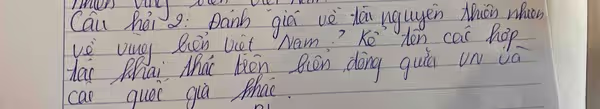 vùng biển Việt Nam
Câu hỏi 2: Đánh giá về tài nguyên thiên nhiên
về vùng biển Việt Nam? Kể tên các hợp
tác khai thác trên biển đông giữa VN và
các quốc gia khác.